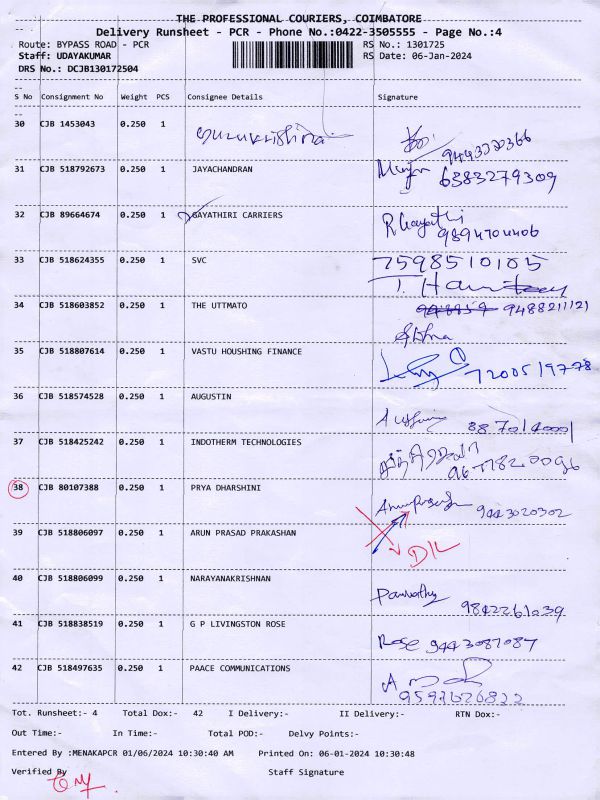 THE PROFESSIONAL COURIERS, COIMBATORE
Delivery Runsheet - PCR - Phone No.:0422-3505555 - Page No.:4
Route: BYPASS ROAD - PCR RS No.: 1301725
Staff: UDAYAKUMAR RS Date: 06-Jan-2024
DRS No.: DCJB130172504
S No Consignment No Weight PCS Consignee Details Signature
30 CJB 1453043 0.250 1 Gurukrishna
31 CJB 518792673 0.250 1 JAYACHANDRAN
6383279309
32 CJB 89664674 0.250 1 GAYATHIRI CARRIERS R Gayathi
9894704406
33 CJB 518624355 0.250 1 SVC 7598510105
34 CJB 518603852 0.250 1 THE UTTMATO 9488211121
35 CJB 518807614 0.250 1 VASTU HOUSHING FINANCE
7200519778
36 CJB 518574528 0.250 1 AUGUSTIN
8870140001
37 CJB 518425242 0.250 1 INDOTHERM TECHNOLOGIES
38 CJB 80107388 0.250 1 PRYA DHARSHINI
9443020302
39 CJB 518806097 0.250 1 ARUN PRASAD PRAKASHAN
D/L
40 CJB 518806099 0.250 1 NARAYANAKRISHNAN Parvathy
9842261039
41 CJB 518838519 0.250 1 G P LIVINGSTON ROSE
Rose 9443087087
42 CJB 518497635 0.250 1 PAACE COMMUNICATIONS
Tot. Runsheet:- 4 Total Dox:- 42 I Delivery:- II Delivery:- RTN Dox:-
Out Time:- In Time:- Total POD:- Delvy Points:-
Entered By :MENAKAPCR 01/06/2024 10:30:40 AM Printed On: 06-01-2024 10:30:48
Verified By Staff Signature